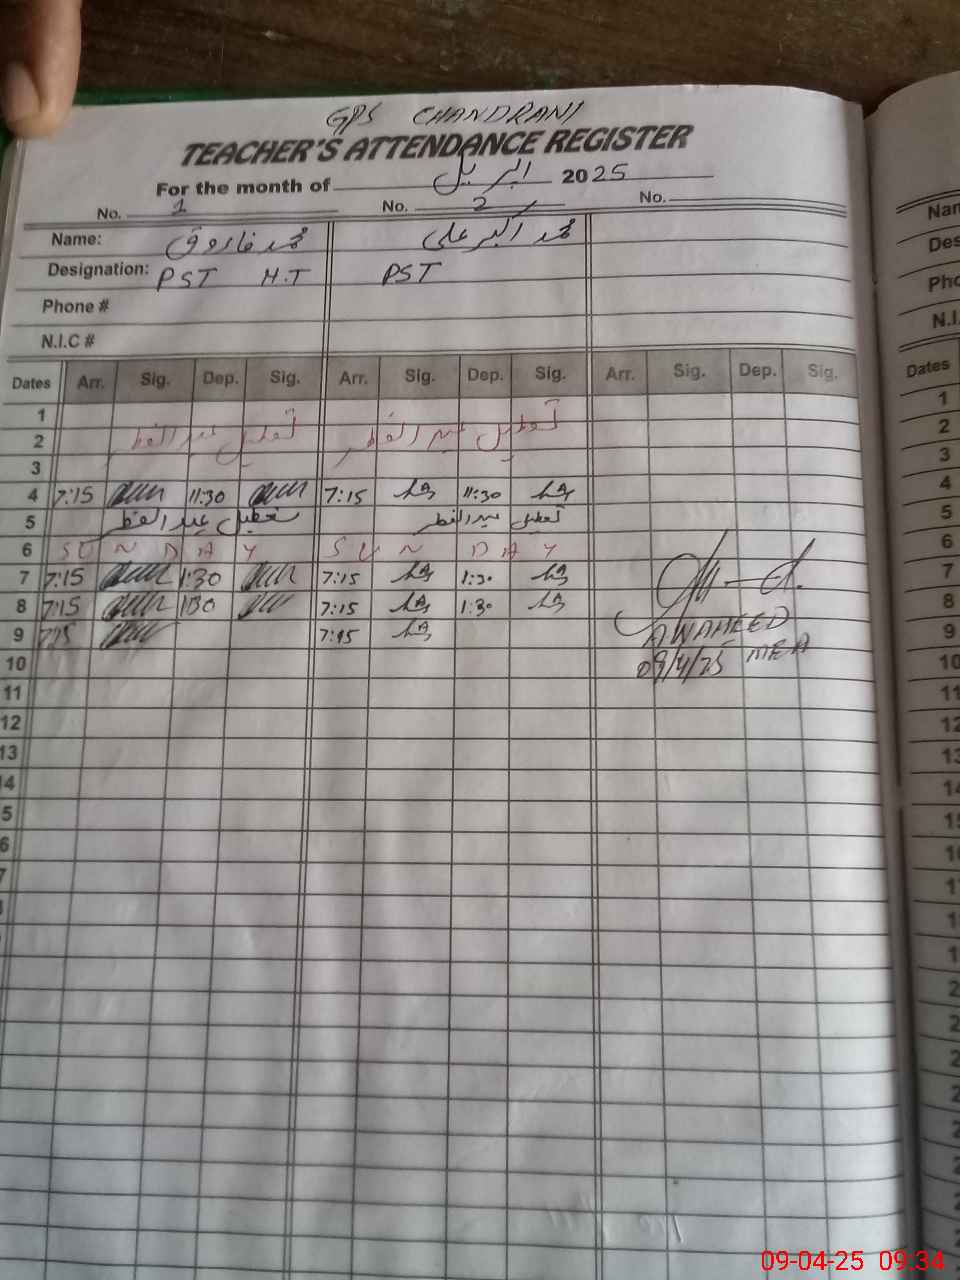 GPS CHANDRANI
TEACHER'S ATTENDANCE REGISTER
For the month of اپریل 2025
No. 1 No. 2 No.
Name: محمد فاروق محمد اکبر علی
Designation: PST H.T PST
Phone #
N.I.C #
Dates Arr. Sig. Dep. Sig. Arr. Sig. Dep. Sig. Arr. Sig. Dep. Sig.
1
2 تعطیل عید الفطر تعطیل عید الفطر
3
4 7:15 11:30 7:15 11:30
5 تعطیل عید الفطر تعطیل عید الفطر
6 SUNDAY SUNDAY
7 7:15 1:30 7:15 1:30
8 7:15 1:30 7:15 1:30
9 7:15 7:15
A WAHEED
09/4/25 MEA
10
11
12
13
14
5
6
7
Nam
Des
Pho
N.I.
Dates
1
2
3
4
5
6
7
8
9
10
11
12
13
14
09-04-25 09:34